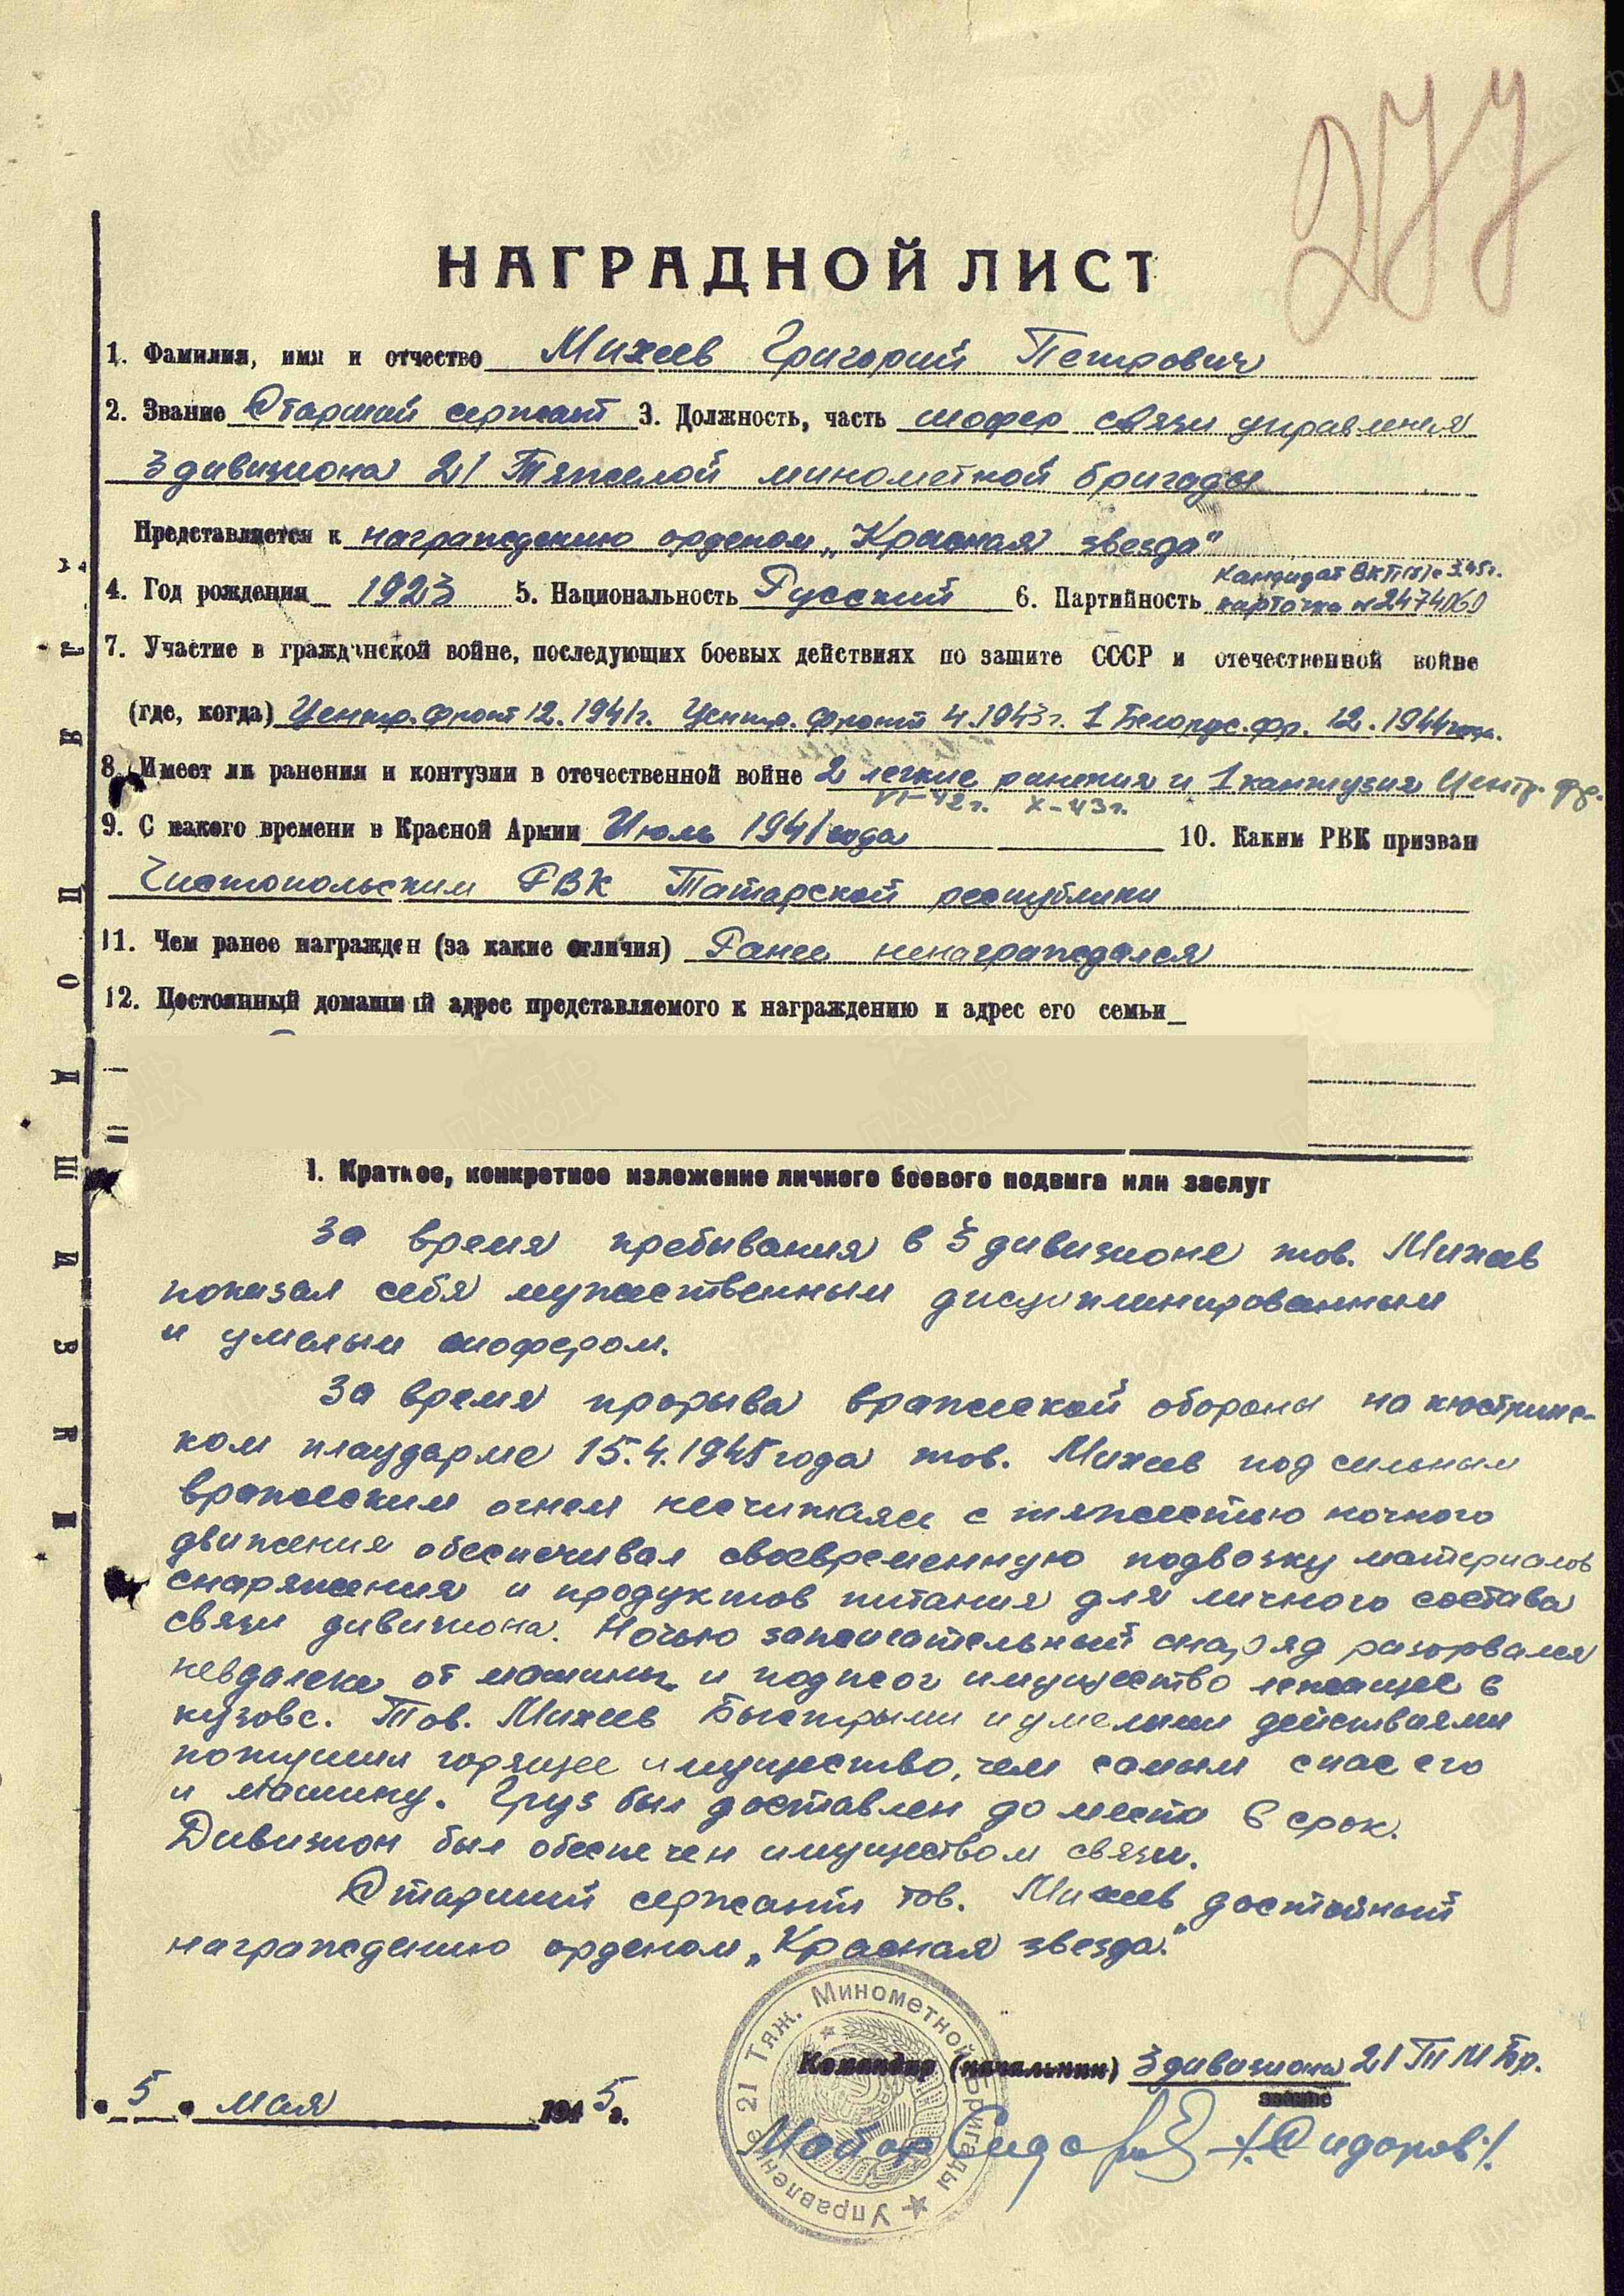 277
НАГРАДНОЙ ЛИСТ
1. Фамилия, имя и отчество Михеев Григорий Петрович
2. Звание Старший сержант 3. Должность, часть шофер связи управления
3 дивизиона 21 Тяжелой минометной бригады
Представляется к награждению орденом „Красная звезда"
4. Год рождения 1923 5. Национальность Русский 6. Партийность Кандидат ВКП(б) с 3.45г.
карточка №2474060
7. Участие в гражданской войне, последующих боевых действиях по защите СССР и отечественной войне
(где, когда) Центр. фронт 12.1941г. Центр. фронт 4.1943г. 1 Белорус. фр. 12.1944года.
8. Имеет ли ранения и контузии в отечественной войне 2 легкие ранения и 1 кантузия Центр. фр.
VI-42г. X-43г.
9. С какого времени в Красной Армии Июль 1941 года 10. Каким РВК призван
Чистопольским РВК Татарской республики
11. Чем ранее награжден (за какие отличия) Ранее ненаграждался
12. Постоянный домашний адрес представляемого к награждению и адрес его семьи
1. Краткое, конкретное изложение личного боевого подвига или заслуг
За время пребывания в 3 дивизионе тов. Михеев
показал себя мужественным дисциплинированным
и умелым шофером.
За время прорыва вражеской обороны на кюстринс-
ком плацдарме 15.4.1945 года тов. Михеев под сильным
вражеским огнем несчитаясь с тяжестью ночного
движения обеспечивал своевременную подвозку материалов
снаряжения и продуктов питания для личного состава
связи дивизиона. Ночью запасигательный снаряд разорвался
невдалеке от машины и поджог имущество лежащее в
кузове. Тов. Михеев Быстрыми и умелыми действиями
потушил горящее имущество, чем самым спас его
и машину. Груз был доставлен до места в срок.
Дивизион был обеспечен имуществом связи.
Старший сержант тов. Михеев достойный
награждению орденом „Красная звезда."
Командир (начальник) 3 дивизиона 21 ТМБр.
звание
„5" мая 1945г.
Майор Сидоров /Сидоров/.
Управление 21 Тяж. Минометной Бригады
ПОДШИВКИ
ПАМЯТЬ НАРОДА
ЦАМО.РФ